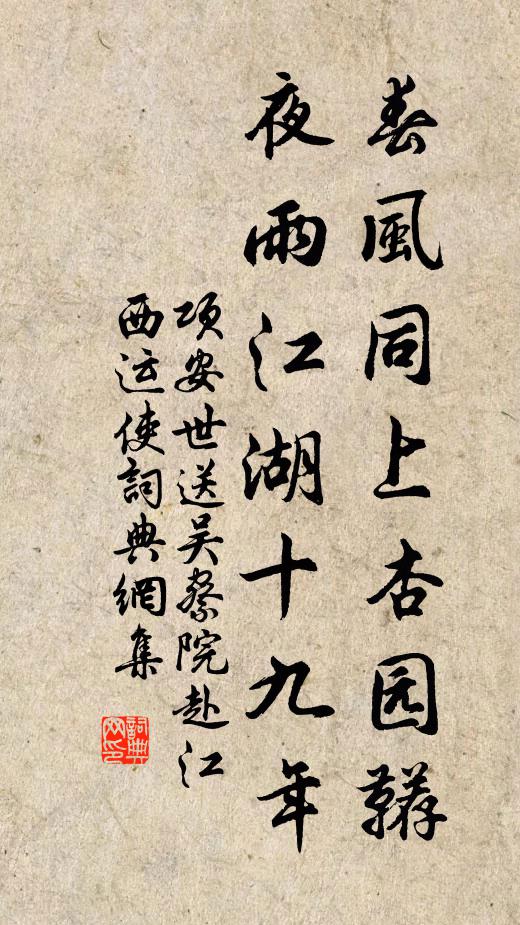 春風同上杏园鞯
夜雨江湖十九年
项安世送吴察院赴江
西运使詞典網集
詞典
网印